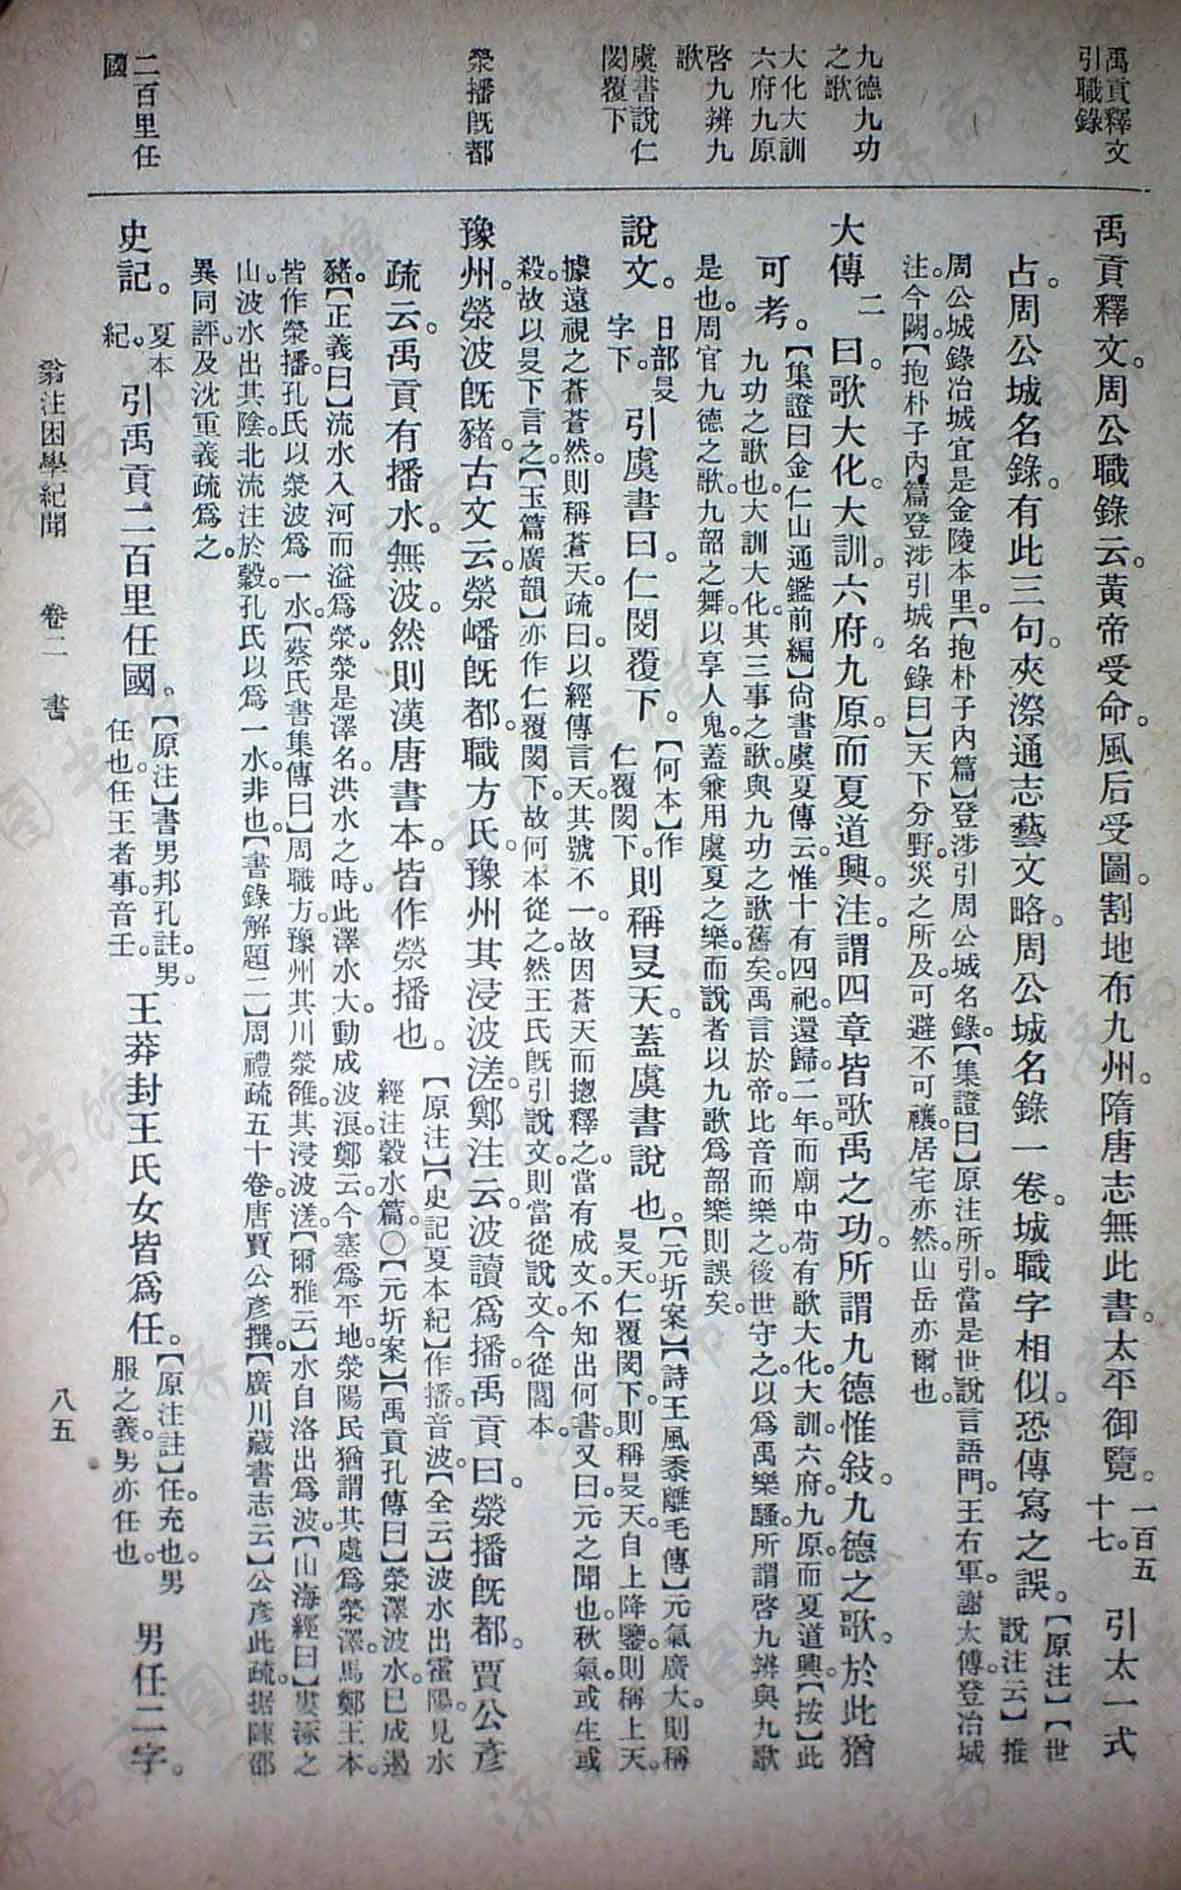 禹貢釋文
引職錄
九德九功
之歌
大化大訓
六府九原
啓九辨九
歌
虞書說仁
閔覆下
滎播既都
二百里任
國
禹貢釋文。周公職錄云。黃帝受命。風后受圖。割地布九州。隋唐志無此書。太平御覽。一百五十七。引太一式
占。周公城名錄。有此三句。夾漈通志藝文略。周公城名錄一卷。城職字相似。恐傳寫之誤。【原注】【世說注云】推
周公城錄。冶城宜是金陵本里。【抱朴子內篇】登涉引周公城名錄。【集證曰】原注所引。當是世說言語門。王右軍謝太傅登冶城
注。今闕。【抱朴子內篇登涉引城名錄曰】天下分野。災之所及。可避不可禳。居宅亦然。山岳亦爾也。
大傳二曰。歌大化。大訓。六府。九原。而夏道興。注。謂四章皆歌禹之功。所謂九德惟敍。九德之歌。於此猶
可考。【集證曰金仁山通鑑前編】尚書虞夏傳云。惟十有四祀。還歸。二年。而廟中苟有歌大化。大訓。六府。九原。而夏道興。【按】此
九功之歌也。大訓大化。其三事之歌。與九功之歌舊矣。禹言於帝。比音而樂之。後世守之。以爲禹樂。騷。所謂啓九辨與九歌
是也。周官九德之歌。九韶之舞。以享人鬼。蓋兼用虞夏之樂。而說者以九歌爲韶樂則誤矣。
說文。日部旻字下。引虞書曰。仁閔覆下。【何本】作仁覆閔下。則稱旻天。蓋虞書說也。【元圻案】【詩王風黍離毛傳】元氣廣大。則稱
旻天。仁覆閔下。則稱旻天。自上降鑒。則稱上天。
據遠視之蒼蒼然。則稱蒼天。疏曰。以經傳言天。其號不一。故因蒼天而摠釋之。當有成文。不知出何書。又曰。元之聞也。秋氣。或生或
殺。故以旻下言之。【玉篇廣韻】亦作仁覆閔下。故何本從之。然王氏既引說文。則當從說文。今從閻本。
豫州。滎波既豬。古文云。滎嶓既都。職方氏。豫州其浸波溠。鄭注云。波讀爲播。禹貢曰。滎播既都。賈公彥
疏云。禹貢有播水。無波。然則漢唐書本。皆作滎播也。【原注】【史記夏本紀】作播。音波。【全云】波水出霍陽。見水
經注穀水篇。〇【元圻案】【禹貢孔傳曰】滎澤波水。已成遏
豬。【正義曰】流水入河而溢爲滎。滎是澤名。洪水之時。此澤水大。動成波浪。鄭云。今塞爲平地。滎陽民猶謂其處爲滎澤。馬鄭王本。
皆作滎播。孔氏以滎波爲一水。【蔡氏書集傳曰】周職方。豫州其川滎雒。其浸波溠。【爾雅云】水自洛出爲波。【山海經曰】婁涿之
山。波水出其陰。北流注於穀。孔氏以爲一水。非也。【書錄解題二】周禮疏五十卷。唐賈公彥撰。【廣川藏書志云】公彥此疏。据陳邵
異同評。及沈重義疏爲之。
史記。夏本紀。引禹貢。二百里任國。【原注】書男邦孔註。男。任也。任王者事。音壬。王莽封王氏女皆爲任。【原注註】任。充也。男服之義。男亦任也。男任二字。
翁注困學紀聞 卷二 書 八五